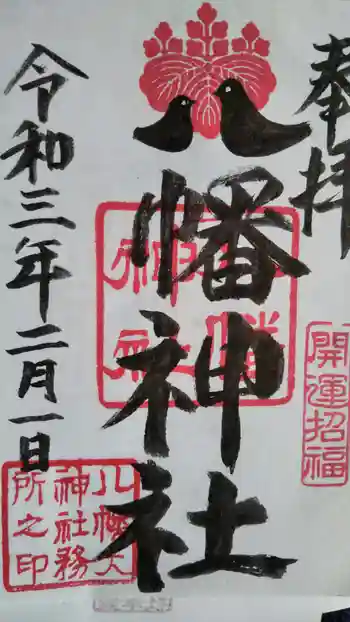 奉拝
開運招福
八幡神社
令和三年二月一日
八幡大
神社務
所之印